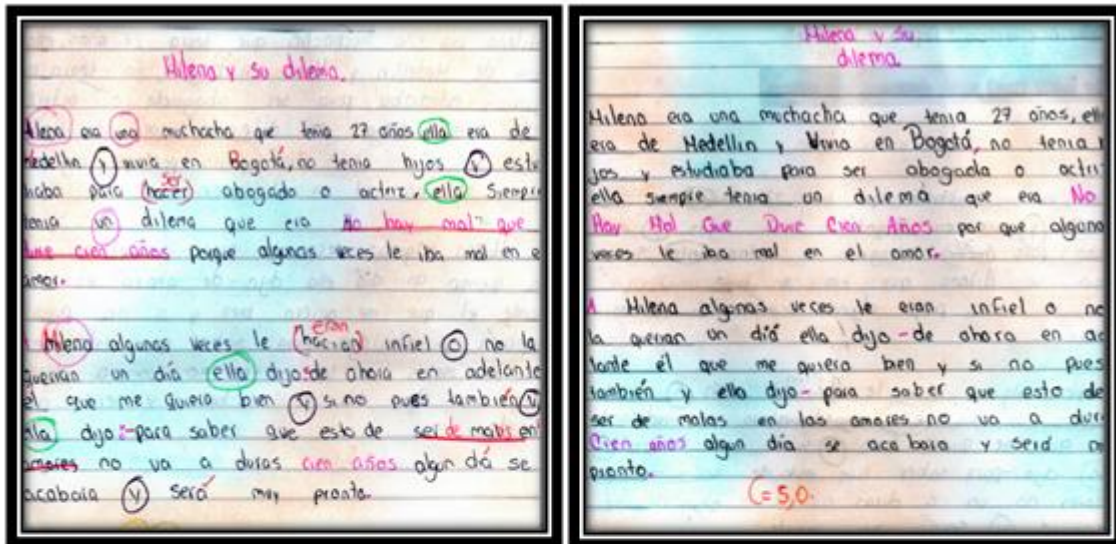 Milena y su dilema.
Milena era una muchacha que tenia 27 años ella era de
Medellin y vivia en Bogotá, no tenia hijos y estu
diaba para ser (hacer) abogado o actriz, ella siempre
tenia un dilema que era No hay mal que
dure cien años porque algunas veces le iba mal en el
amor.
A Milena algunas veces le eran (hacian) infiel o no la
querian un dia ella dijo: de ahora en adelante
el que me quiera bien y si no pues también y
ella dijo:-para saber que esto de ser de malas en
amores no va a duras cien años algun dá se
acabara y será muy pronto.
Milena y su
dilema.
Milena era una muchacha que tenia 27 años, ella
era de Medellin y Vivia en Bogotá, no tenia
jos y estudiaba para ser abogada o actriz
ella siempre tenia un dilema que era No
Hay Mal Que Dure Cien Años por que alguna
veces le iba mal en el amor.
A Milena algunas veces le eran infiel o no
la querian un diá ella dijo-de ahora en ade
lante él que me quiera bien y si no pues
también y ella dijo-para saber que esto de
ser de malas en las amores no va a dura
Cien años algun día se acabara y será m
pronto.
C=5,0.